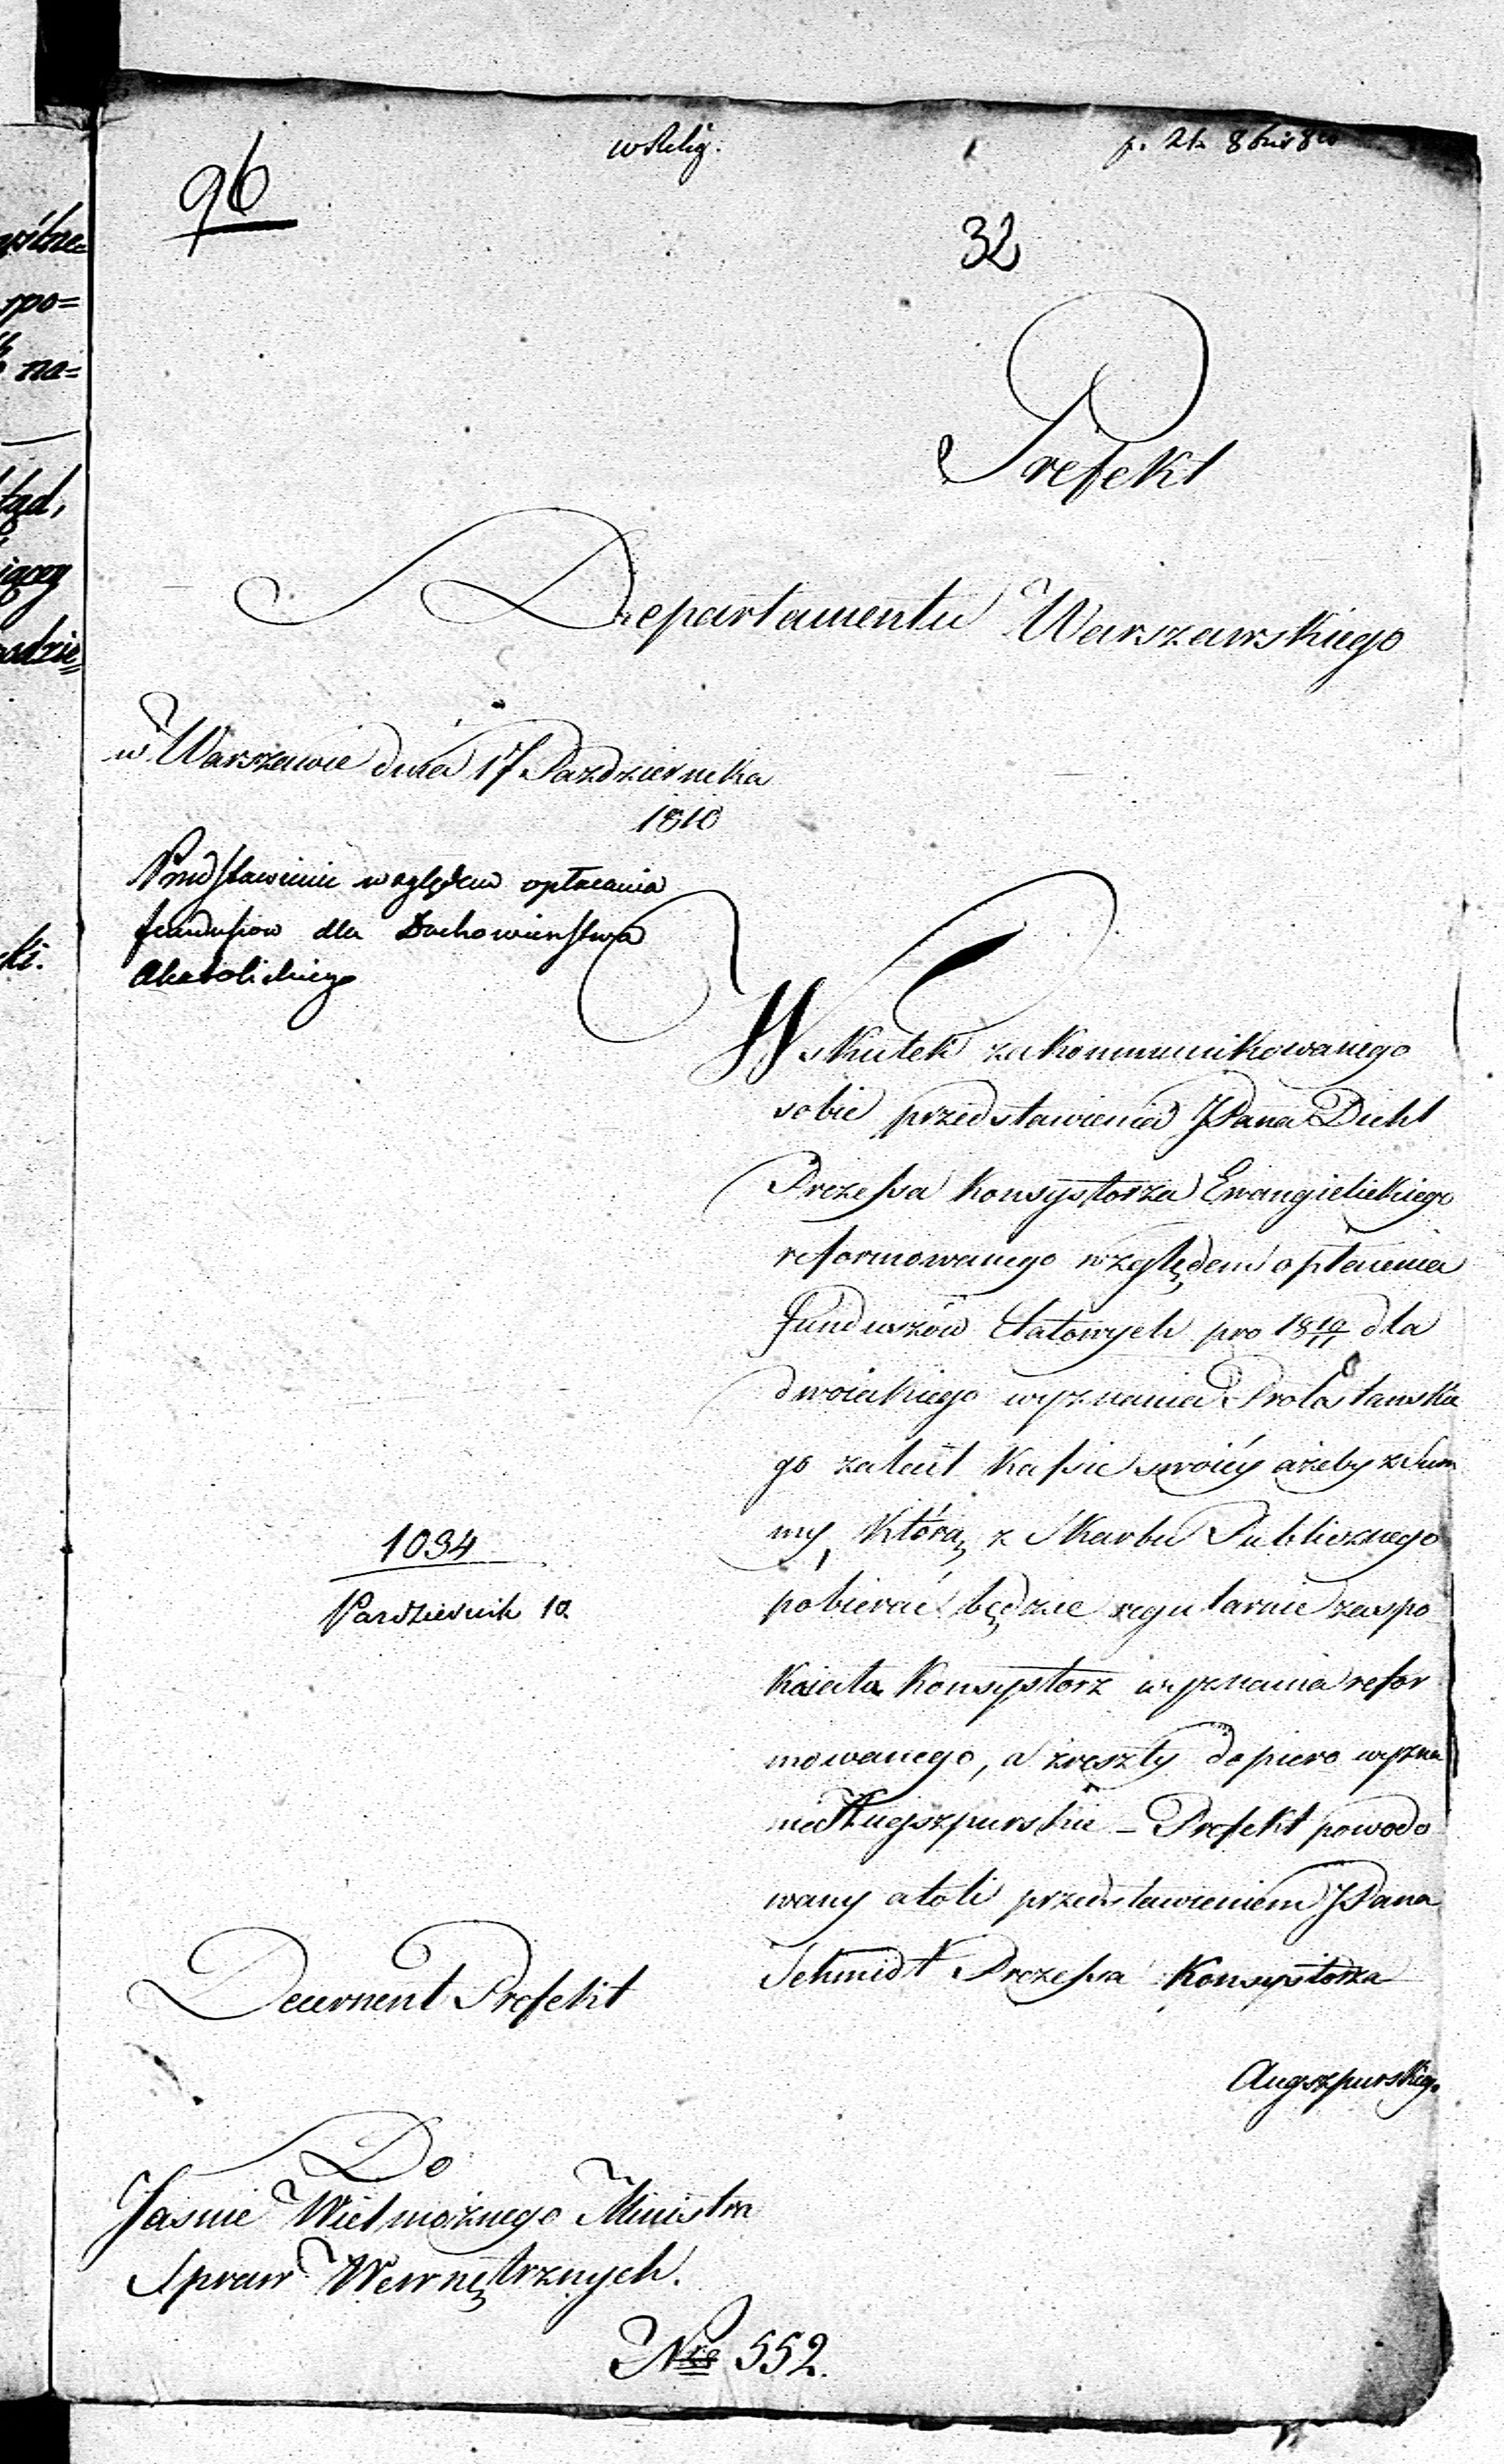 96
w Relig.
p. 21. 8bris 810
32
Prefekt
Departamentu Warszawskiego
w Warszawie dnia 17 Pazdziernika
1810
Przedstawienie względem opłacania
funduszow dla Duchowieństwa
Akatolickiego
W skutek zakommunikowanego
sobie przedstawienia JPana Diehl
Prezessa Konsystorza Ewangielickiego
reformowanego względem opłacenia
Funduszów Etatowych pro 18 10/11 dla
dwoiakiego wyznania Protestanskie
go zalecił Kassie swoiéy ażeby z Sum
my, którą z Skarbu Publicznego
pobierać będzie regularnie zaspo
kaiała Konsystorz wyznania refor
mowanego, a zreszty dopiero wyzna
nie Augszpurskie – Prefekt powodo
wany atoli przedstawieniem JPana
Schmidt Prezessa Konsystorza
Augszpurskiego
1034
Pazdziernik 10.
Decernent Prefekt
Do
Jasnie Wielmożnego Ministra
Spraw Wewnętrznych.
Nro 552.
wilne=
spo=
na=
iącey
adzie=
ki.